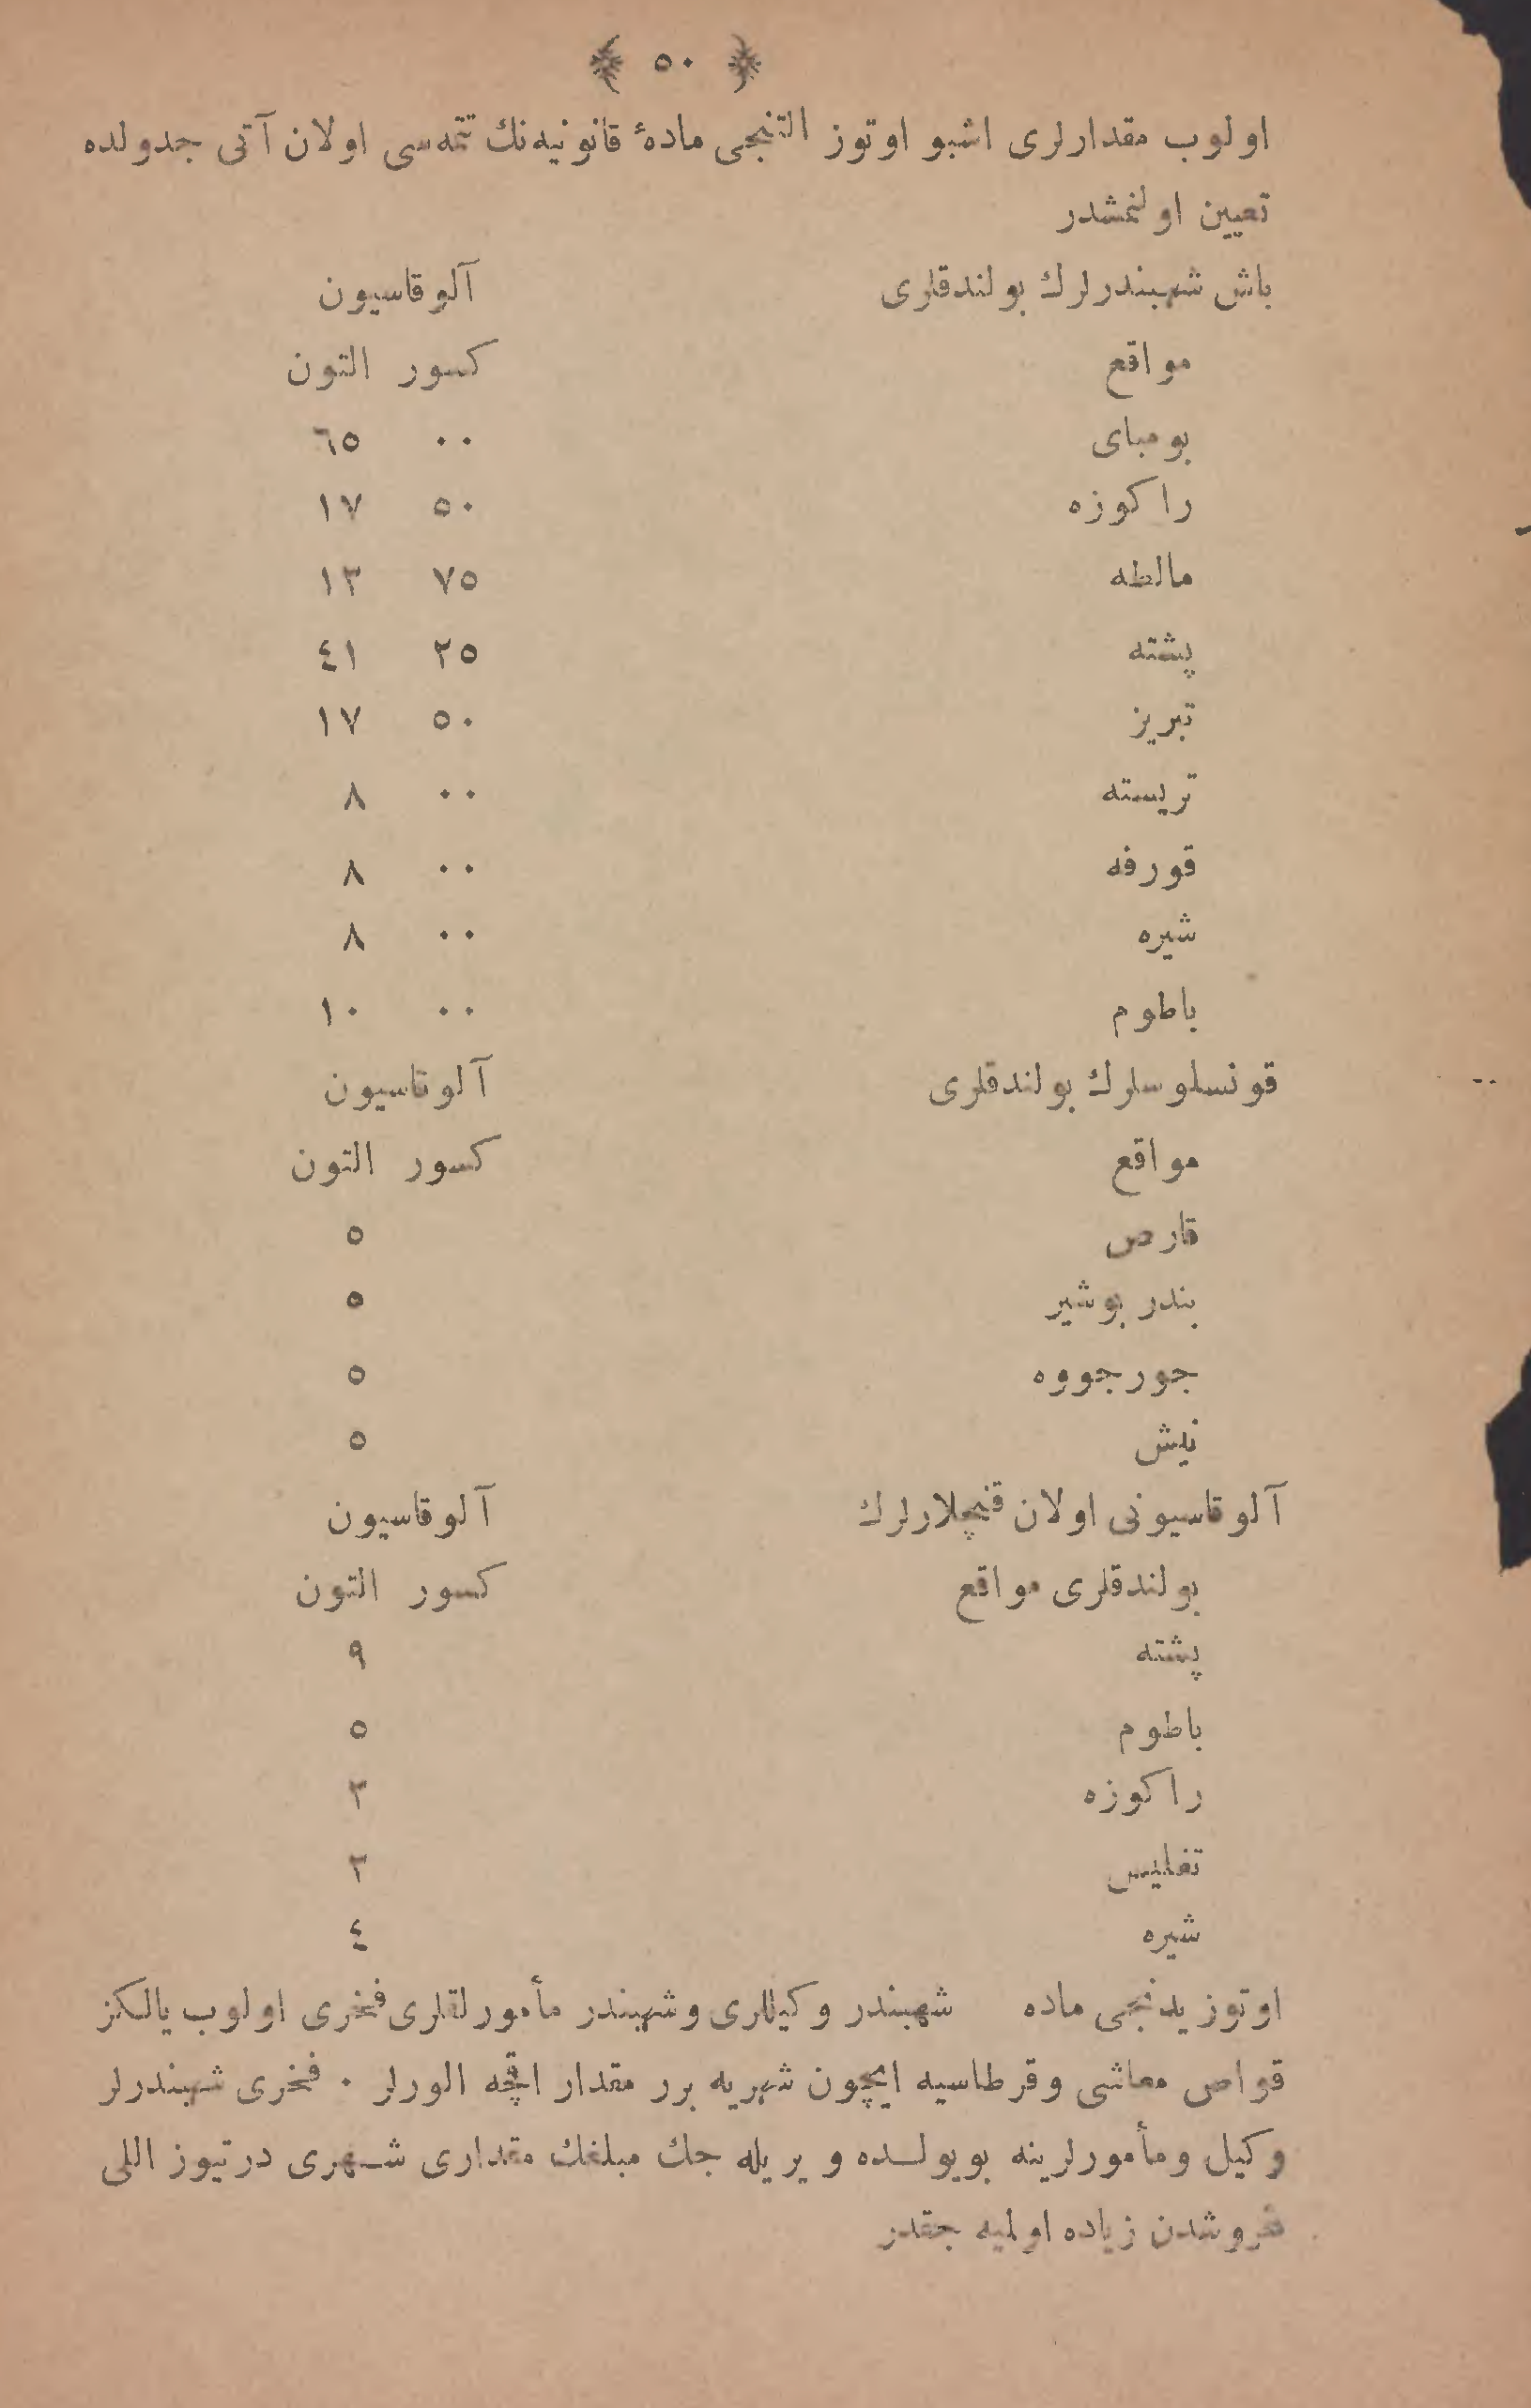 ﴿ ٥٠ ﴾
اولوب مقدارلری اشبو اوتوز التنجی مادهٔ قانونیه‌نك تتمه‌سی اولان آتی جدولده
تعیین اولنمشدر
باش شهبندرلرك بولندقلری آلوقاسیون
مواقع كسور التون
بومبای ٠٠ ٦٥
راكوزه ٥٠ ١٧
مالطه ٧٥ ١٣
پشته ٢٥ ٤١
تبریز ٥٠ ١٧
تریسته ٠٠ ٨
قورفه ٠٠ ٨
شیره ٠٠ ٨
باطوم ٠٠ ١٠
قونسلوسلرك بولندقلری آلوقاسیون
مواقع كسور التون
قارص ٥
بندر بوشیر ٥
جورجووه ٥
نیش ٥
آلوقاسیونی اولان قنچلارلرك آلوقاسیون
بولندقلری مواقع كسور التون
پشته ٩
باطوم ٥
راكوزه ٣
تفلیس ٣
شیره ٤
اوتوز یدنجی ماده شهبندر وكیللری وشهبندر مأمورلقلری فخری اولوب یالكز
قواص معاشی وقرطاسیه ایچون شهریه برر مقدار اقچه الورلر ٠ فخری شهبندرلر
وكیل ومأمورلرینه بویولده ویریله جك مبلغك مقداری شهری درتیوز اللی
غروشدن زیاده اولمیه جقدر